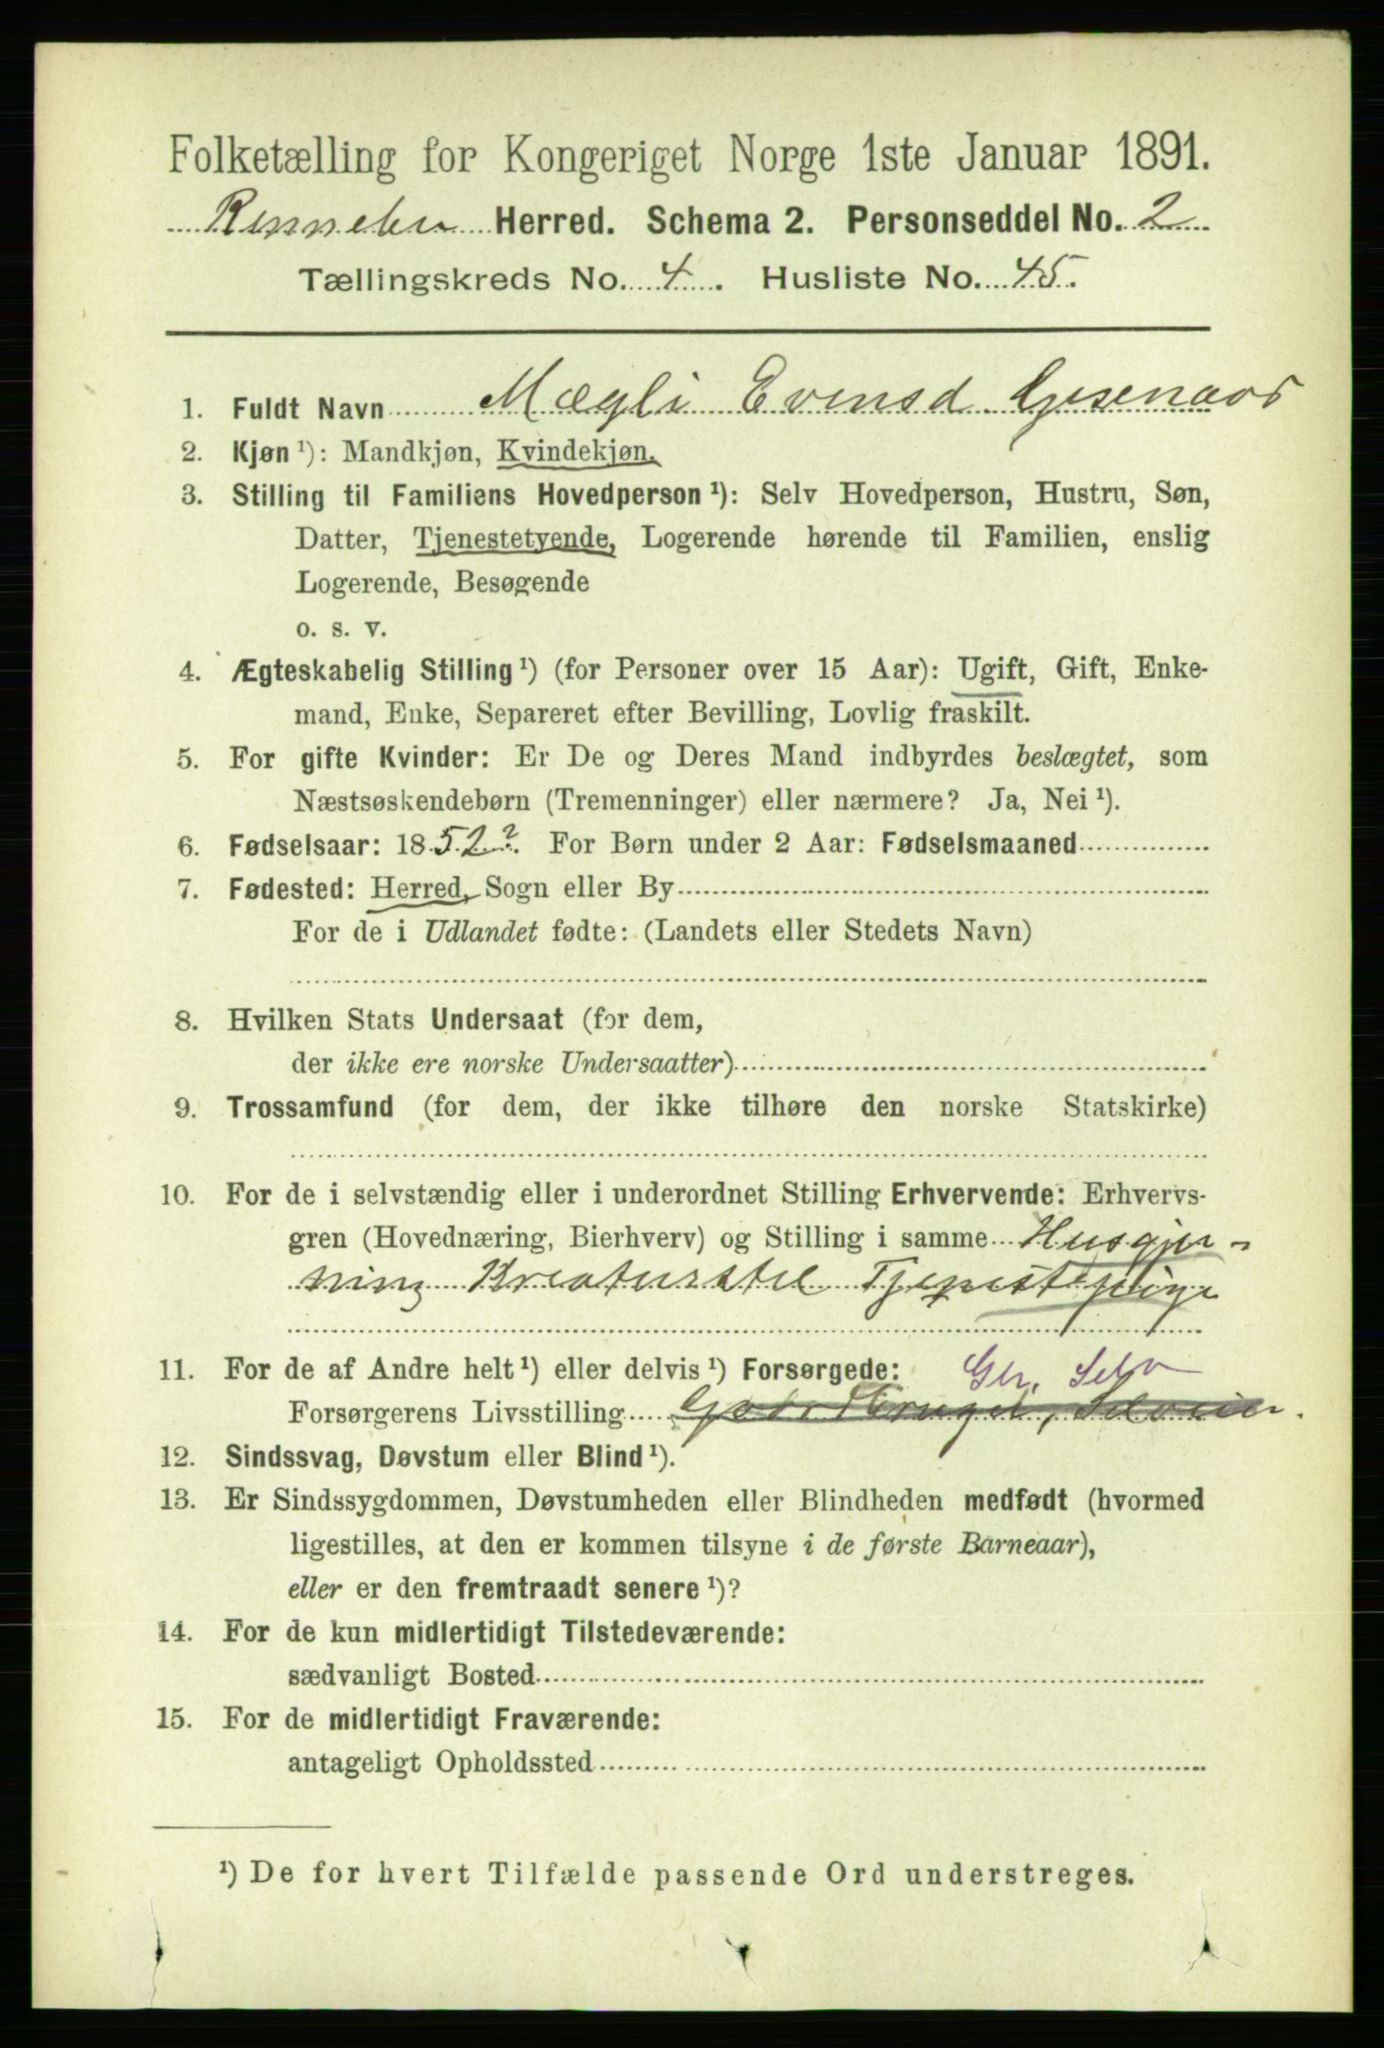 Folketælling for Kongeriget Norge 1ste Januar 1891.
Rennebu Herred. Schema 2. Personseddel No. 2
Tællingskreds No. 4. Husliste No. 45.
1. Fuldt Navn Mægli Evensd. Gisenaas
2. Kjøn ¹): Mandkjøn, Kvindekjøn.
3. Stilling til Familiens Hovedperson ¹): Selv Hovedperson, Hustru, Søn,
Datter, Tjenestetyende, Logerende hørende til Familien, enslig
Logerende, Besøgende
o. s. v.
4. Ægteskabelig Stilling ¹) (for Personer over 15 Aar): Ugift, Gift, Enke-
mand, Enke, Separeret efter Bevilling, Lovlig fraskilt.
5. For gifte Kvinder: Er De og Deres Mand indbyrdes beslægtet, som
Næstsøskendebørn (Tremenninger) eller nærmere? Ja, Nei ¹).
6. Fødselsaar: 1852? For Børn under 2 Aar: Fødselsmaaned
7. Fødested: Herred, Sogn eller By
For de i Udlandet fødte: (Landets eller Stedets Navn)
8. Hvilken Stats Undersaat (for dem,
der ikke ere norske Undersaatter)
9. Trossamfund (for dem, der ikke tilhøre den norske Statskirke)
10. For de i selvstændig eller i underordnet Stilling Erhvervende: Erhvervs-
gren (Hovednæring, Bierhverv) og Stilling i samme Husgjer-
ning Kreaturstel Tjenestepige
11. For de af Andre helt ¹) eller delvis ¹) Forsørgede: Gbr. Selv
Forsørgerens Livsstilling Gaardbruger, Selveier.
12. Sindssvag, Døvstum eller Blind ¹).
13. Er Sindssygdommen, Døvstumheden eller Blindheden medfødt (hvormed
ligestilles, at den er kommen tilsyne i de første Barneaar),
eller er den fremtraadt senere ¹)?
14. For de kun midlertidigt Tilstedeværende:
sædvanligt Bosted
15. For de midlertidigt Fraværende:
antageligt Opholdssted
¹) De for hvert Tilfælde passende Ord understreges.